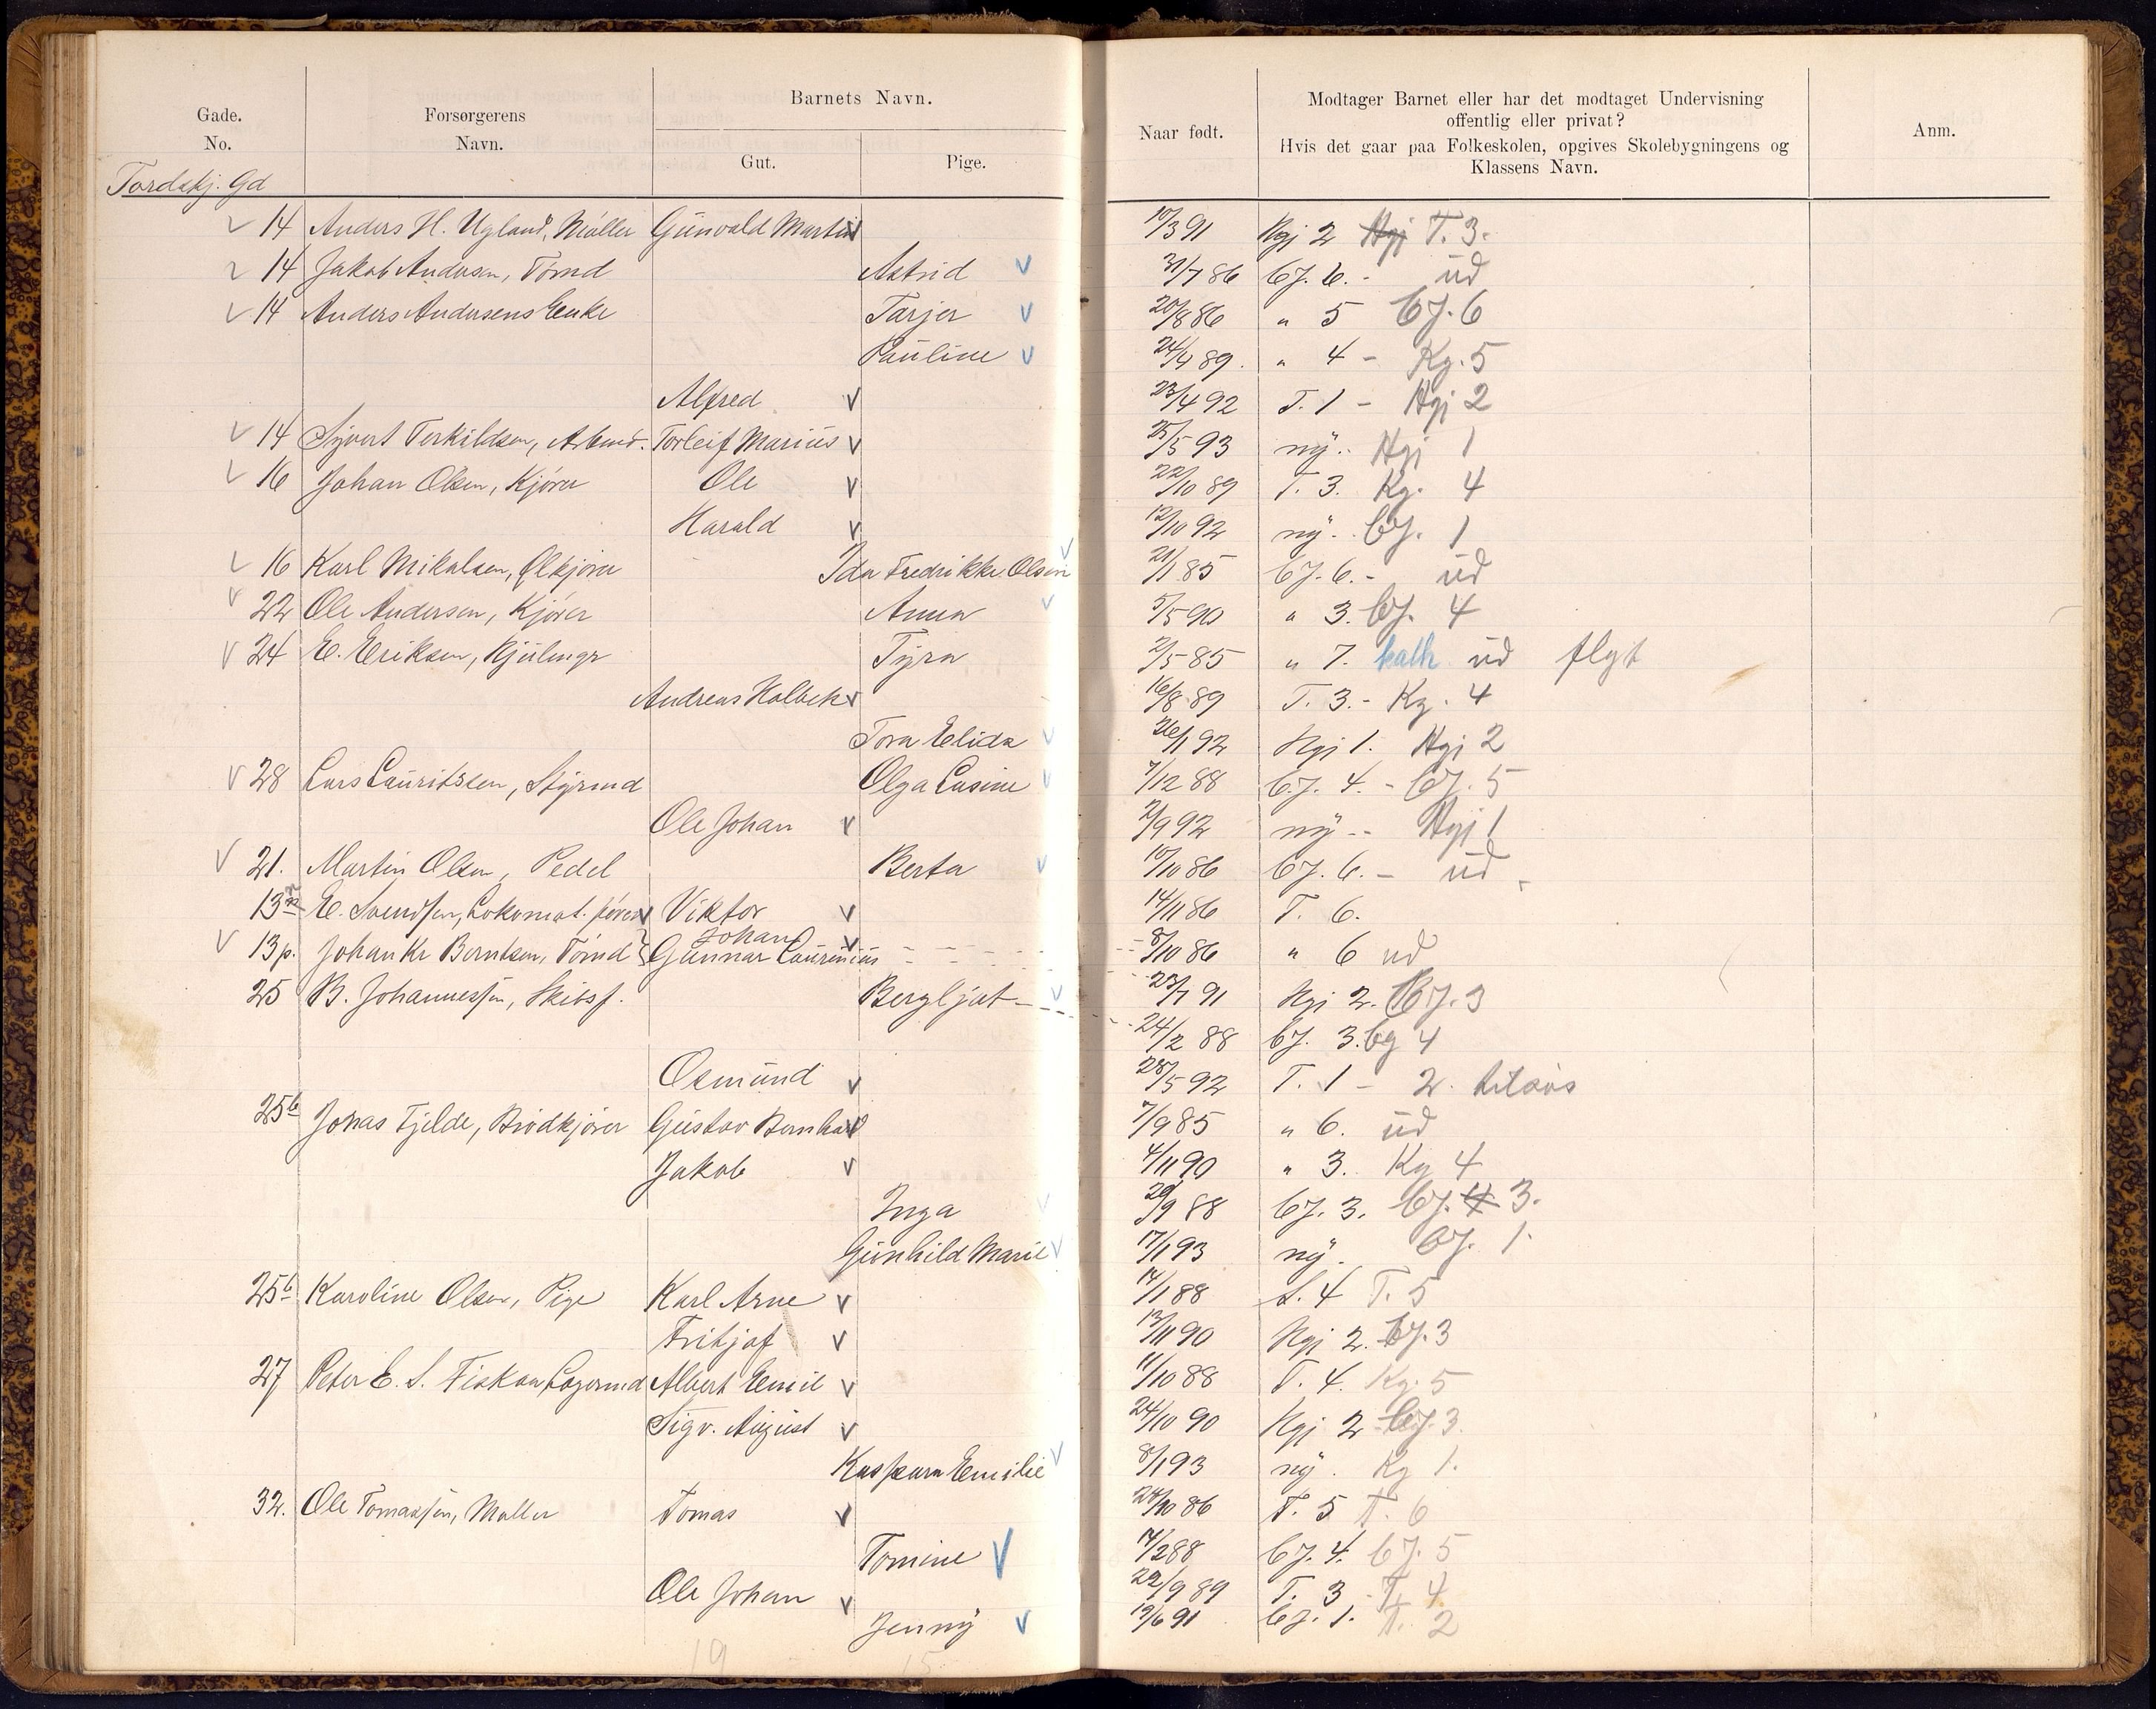 Gade.
No.
Forsørgerens
Navn.
Barnets Navn.
Gut.
Pige.
Naar født.
Modtager Barnet eller har det modtaget Undervisning
offentlig eller privat?
Hvis det gaar paa Folkeskolen, opgives Skolebygningens og
Klassens Navn.
Anm.
Tordskj. Gd
14 Anders H. Ugland, Møller Gunvald Martin 10/3 91 Hgj 2 T. 3.
14 Jakob Andersen, Tømd Astrid 31/7 86 bJ. 6. - ud
14 Anders Andersens Enke Tarjer 20/8 86 " 5 bJ. 6
Pauline 24/4 89. " 4 - Kg. 5
Alfred 23/4 92 T. 1 - Hgj 2
14 Syvert Terkildsen, Arbmd. Torleif Marius 25/5 93 ny. Hgj 1
16 Johan Olsen, Kjører Ole 22/10 89 T. 3. Kg. 4
Harald 12/10 92 ny. bJ. 1
16 Karl Mikalsen, Ølkjører Ida Fredrikke Olsen 21/1 85 bJ. 6. - ud
22 Ole Andersen, Kjører Anna 5/5 90 " 3. bJ. 4
24 E. Eriksen, Tyra 2/5 85 " 7. kath ud flyt
Andreas Holbek 16/8 89 T. 3. - Kg. 4
Tora Elida 26/1 92 Hgj 1. Hgj 2
28 Lars Lauritssen, Styrmd Olga Lusine 7/12 88 bJ. 4. - bJ. 5
Ole Johan 2/9 92 ny -- Hgj 1
21. Martin Olsen, Pedel Berta 10/10 86 bJ. 6. - ud -
13 E. Svendsen, Lokomot. fører Viktor 14/11 86 T. 6.
Johan
13p. Johan Kr Berntsen, Tømd Gunnar Laurinius 8/10 86 " 6 ud
25 B. Johannessen, Skibsf. Bergljot 23/7 91 Hgj 2. bJ. 3
24/2 88 bJ. 3. bg 4
Osmund 28/5 92 T. 1 - 2.
25b Jonas Fjelde, Brødkjører Gustav Bernhard 7/9 85 " 6. ud
Jakob 4/11 90 " 3. Kg 4
Inga 29/9 88 bJ. 3. bJ. 4 3.
Gunhild Marie 17/1 93 ny. bJ. 1.
25b Karoline Olsen, Pige Karl Arne 14/1 88 S. 4 T. 5
Fritjof 13/11 90 Hgj 2. bJ. 3
27 Peter E. S. Fiskaa Lagermd Albert Emil 11/10 88 T. 4. Kg. 5
Sigv. August 24/10 90 Hgj 2 bJ. 3.
Kaspara Emilie 8/1 93 ny. Kg 1.
32. Ole Tomassen, Møller Tomas 24/10 86 T. 5 T. 6
Tomine 14/2 88 bJ. 4. bJ. 5
Ole Johan 22/9 89 T. 3 - T. 4
Jenny 19/6 91 bJ. 1. T. 2
19 15